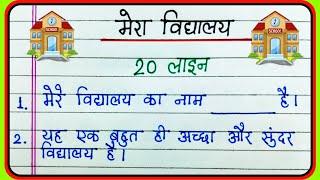 मेरा विद्यालय
SCHOOL
SCHOOL
20 लाइन
1. मेरे विद्यालय का नाम ______ है।
2. यह एक बहुत ही अच्छा और सुंदर
विद्यालय है।